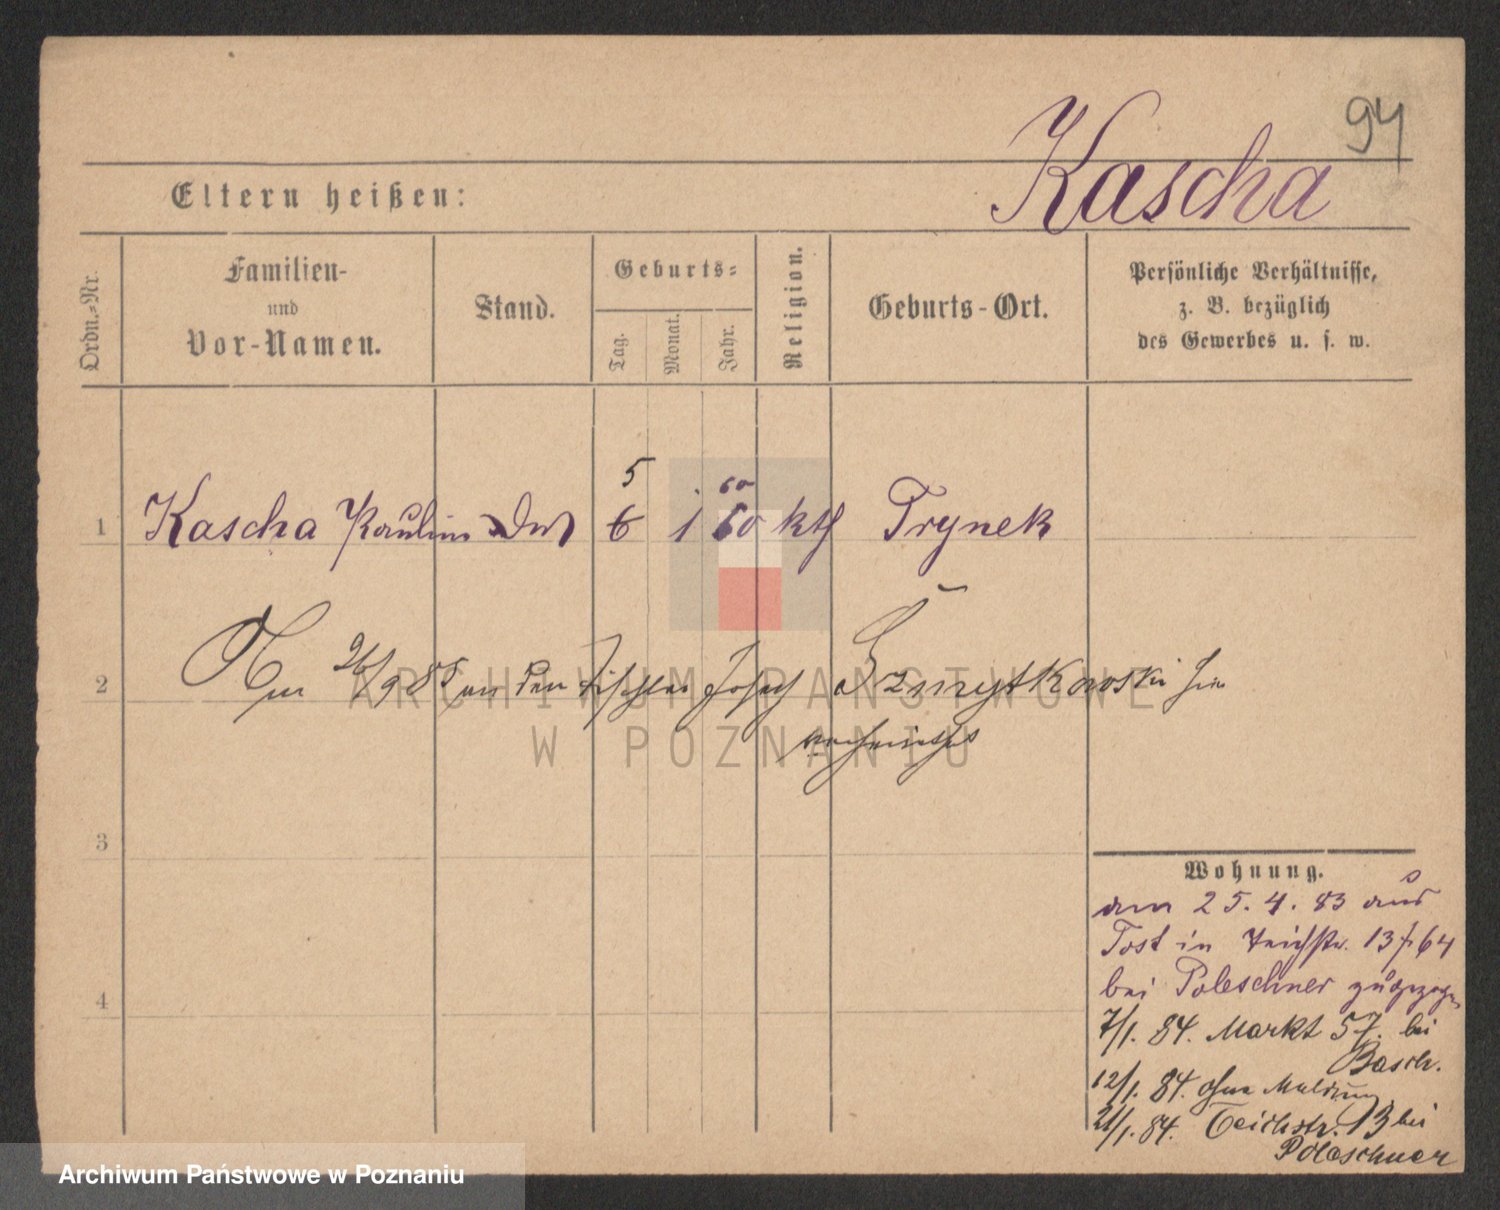 94
Kascha
Eltern heißen:
Ordn.-Nr.
Familien-
und
Vor-Namen.
Stand.
Geburts-
Tag.
Monat.
Jahr.
Religion.
Geburts-Ort.
Persönliche Verhältnisse,
z. B. bezüglich
des Gewerbes u. s. w.
5 60
1 Kascha Pauline 6 1 60 kth Trynek
2 Am 26/9 85 an den Tischler Josef Szmytkowski hier
verheirathet
3
4
Wohnung.
am 25. 4. 83 aus
Tost in Teichstr. 13 f. 64
bei Poleschner zugezogen
7/1. 84. Markt 57. bei
Basch.
12/1. 84. ohne Meldung
21/1. 84. Teichstr. 13 bei
Poleschner
ARCHIWUM PAŃSTWOWE
W POZNANIU
Archiwum Państwowe w Poznaniu